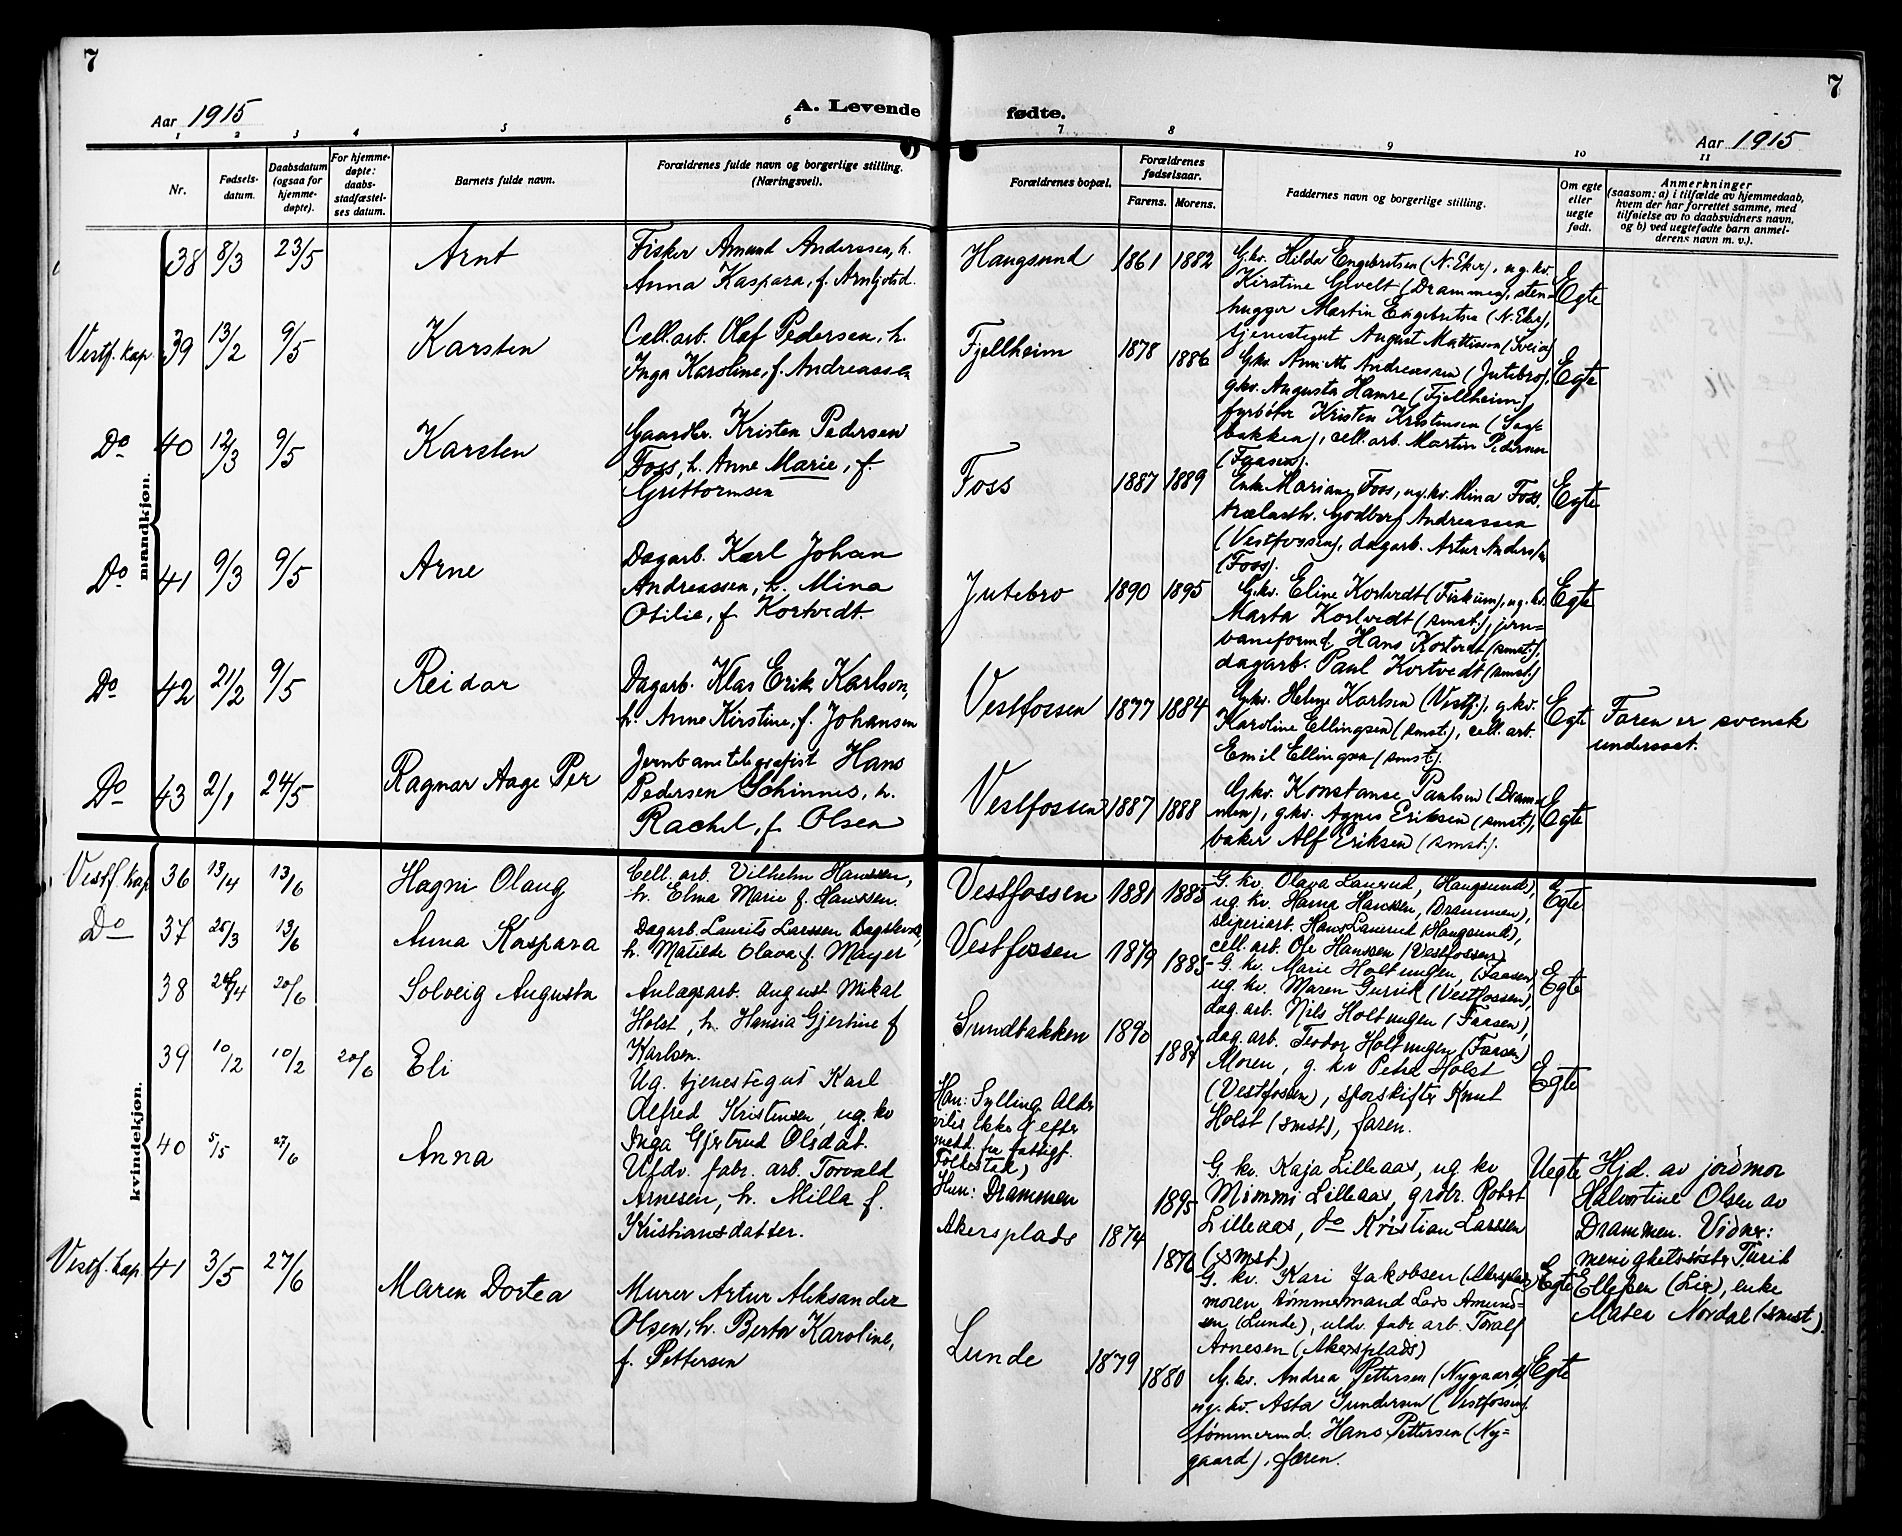 7
Aar 1915
A. Levende
1 2 3 4 5 6
Nr.
Fødsels-
datum.
Daabsdatum
(ogsaa for
hjemme-
døpte).
For hjemme-
døpte:
daabs-
stadfæstel-
ses datum.
Barnets fulde navn.
Forældrenes fulde navn og borgerlige stilling.
(Næringsvei).
mandkjøn.
38 8/3 23/5 Arnt
Fisker Amund Anderssen, h.
Anna Kaspara, f. Arnljotsd.
Vestf. kap. 39 13/2 9/5 Karsten
Cell.arb. Olaf Pedersen, h.
Inga Karoline, f. Andreassen
Do 40 12/3 9/5 Karsten
Gaardbr. Kristen Pedersen
Foss, h. Anne Marie, f.
Guttormsen
Do 41 9/3 9/5 Arne
Dagarb. Karl Johan
Andreassen, h. Mina
Otilie, f. Kortvedt.
Do 42 21/2 9/5 Reidar
Dagarb. Klas Erik Karlson,
h. Anne Kirstine, f. Johansen
Do 43 2/1 24/5 Ragnar Aage Per
Jernbanetelegrafist Hans
Pedersen Schinnes, h.
Rachel, f. Olsen
kvindekjøn.
Vestf. kap. 36 13/4 13/6 Hagni Olaug
Cell. arb. Vilhelm Hanssen,
h. Elma Marie f. Hanssen.
Do 37 25/3 13/6 Anna Kaspara
Dagarb. Laurits Larssen
h. Matilde Olava f. Mayer
38 24/4 20/6 Solveig Augusta
Anlægsarb. August Mikal
Holst, h. Hansia Gjertine f.
Karlsen.
39 10/2 10/2 20/6 Eli
Ug. tjenestegut Karl
Alfred Kristensen, ug. kv
Inga Gjertrud Olsdat.
40 5/5 27/6 Anna
Utdv. fabr. arb. Torvald
Arnesen, h. Milla f.
Kristiansdatter.
Vestf. kap. 41 3/5 27/6 Maren Dortea
Murer Artur Aleksander
Olsen, h. Berta Karoline,
f. Pettersen
7
fødte.
Aar 1915
7 8 9 10 11
Forældrenes bopæl.
Forældrenes
fødselsaar.
Farens. Morens.
Faddernes navn og borgerlige stilling.
Om egte
eller
uegte
født.
Anmerkninger
(saasom: a) i tilfælde av hjemmedaab,
hvem der har forrettet samme, med
tilføielse av to daabsvidners navn,
og b) ved uegtefødte barn anmel-
derens navn m. v.).
Haugsund 1861 1882
Gkv. Hilda Engebritsen (N. Eker), ug. kv.
Kirstine Givelt (Drammen), sten-
hugger Martin Engebretsen (N. Eker),
tjenestegut August Mattisson (Sveia)
Egte
Fjellheim 1878 1886
Gkv. Andreassen (Jutebro),
gkv. Augusta Hamre (Fjellheim),
fyrbøter Kristen Kristensen (Sag-
bakken), cell.arb. Martin Pedersen
(Faasen).
Egte
Foss 1887 1889
Enke Mariane Foss, ug. kv. Mina Foss,
trælasth. Godberg Andreassen
(Vestfossen), dagarb. Artur Anderssen
(Foss).
Egte
Jutebro 1890 1895
Gkv. Eline Kortvedt (Fiskum), ug. kv.
Marta Kortvedt (smst.), jern-
baneformd. Hans Kortvedt (smst.),
dagarb. Paul Kortvedt (smst.)
Egte
Vestfossen 1877 1884
Gkv. Helene Karlsen (Vestf.), gkv.
Karoline Ellingsen (smst.), cell. arb.
Emil Ellingsen (smst.).
Egte
Faren er svensk
undersaat.
Vestfossen 1887 1888
Gkv. Konstanse Paulsen (Dram-
men), gkv. Agnes Eriksen (smst.),
baker Alf Eriksen (smst.).
Egte
Vestfossen 1881 1885
G. kv. Olava Laurud, (Haugsund),
ug. kv. Hanna Hanssen, (Drammen),
sliperiarb. Hans Laurud (Haugsund),
cell. arb. Ole Hanssen (Vestfossen)
Egte
Vestfossen 1879 1885
G. kv. Marie Holtungen, (Faasen)
ug. kv. Maren Gurrik (Vestfossen),
dag. arb. Nils Holtungen (Faasen),
dag. arb. Teodor Holtungen (Faasen)
Egte
Sundbakken 1890 1884
Moren, g. kv Petra Holst
(Vestfossen), sporskifter Knut
Holst (smst), faren.
Egte
Han: Sylling
Hun: Drammen
1895
G. kv. Kaja Lilleaas, ug. kv
Mimmi Lilleaas, grdbr. Robert
Lilleaas, do Kristian Larssen
(smst)
Uegte
Hjd. av jordmor
Halvortine Olsen av
Drammen. Vidner:
menighetssøster Turid
Ellefsen (Lier), enke
Matea Nordal (smst).
Akersplads 1874 1876
G. kv. Kari Jakobsen (Akersplads)
moren, tømmermand Lars Amund-
sen (Lunde), utdv. fabr. arb. Toralf
Arnesen (Akersplads)
Egte
Lunde 1879 1880
G. kv. Andrea Pettersen (Nygaard),
ug. kv. Asta Gundersen (Vestfossen),
tømmermd. Hans Pettersen (Ny-
gaard), faren.
Egte